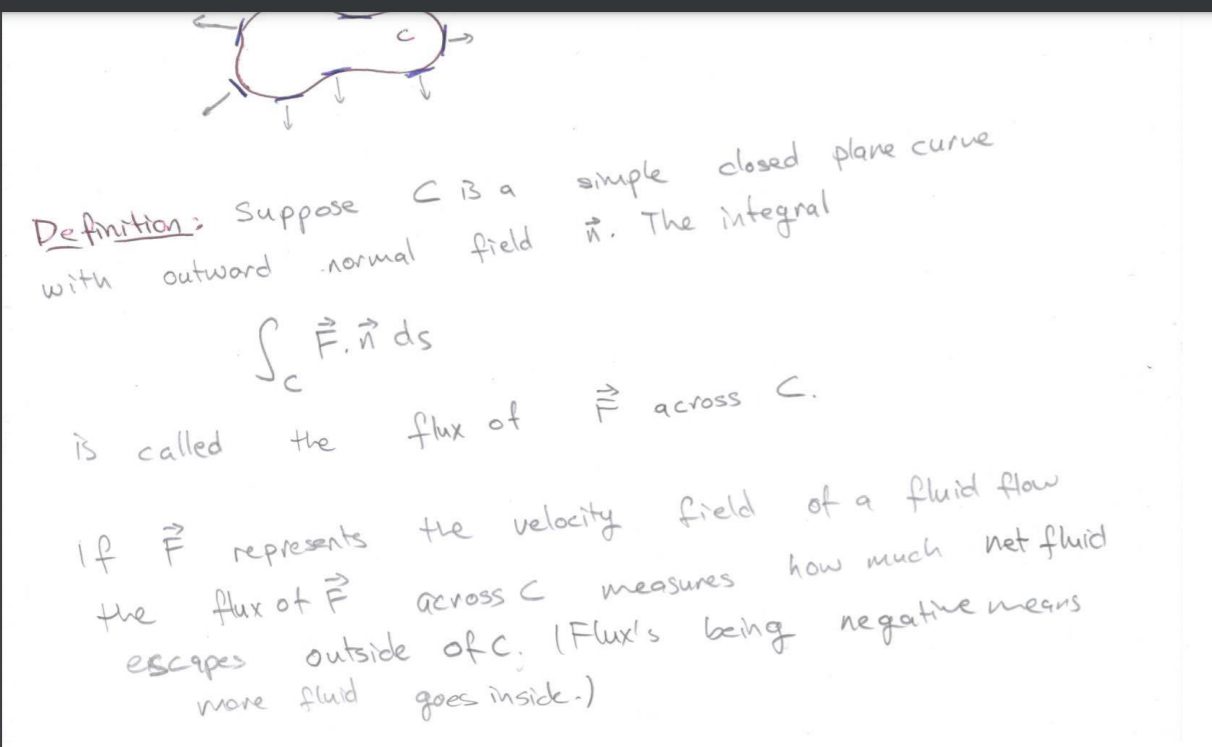 C
Definition: Suppose C is a simple closed plane curve
with outward normal field n⃗. The integral
∫_C F⃗.n⃗ ds
is called the flux of F⃗ across C.
If F⃗ represents the velocity field of a fluid flow
the flux of F⃗ across C measures how much net fluid
escapes outside of C. (Flux's being negative means
more fluid goes inside.)